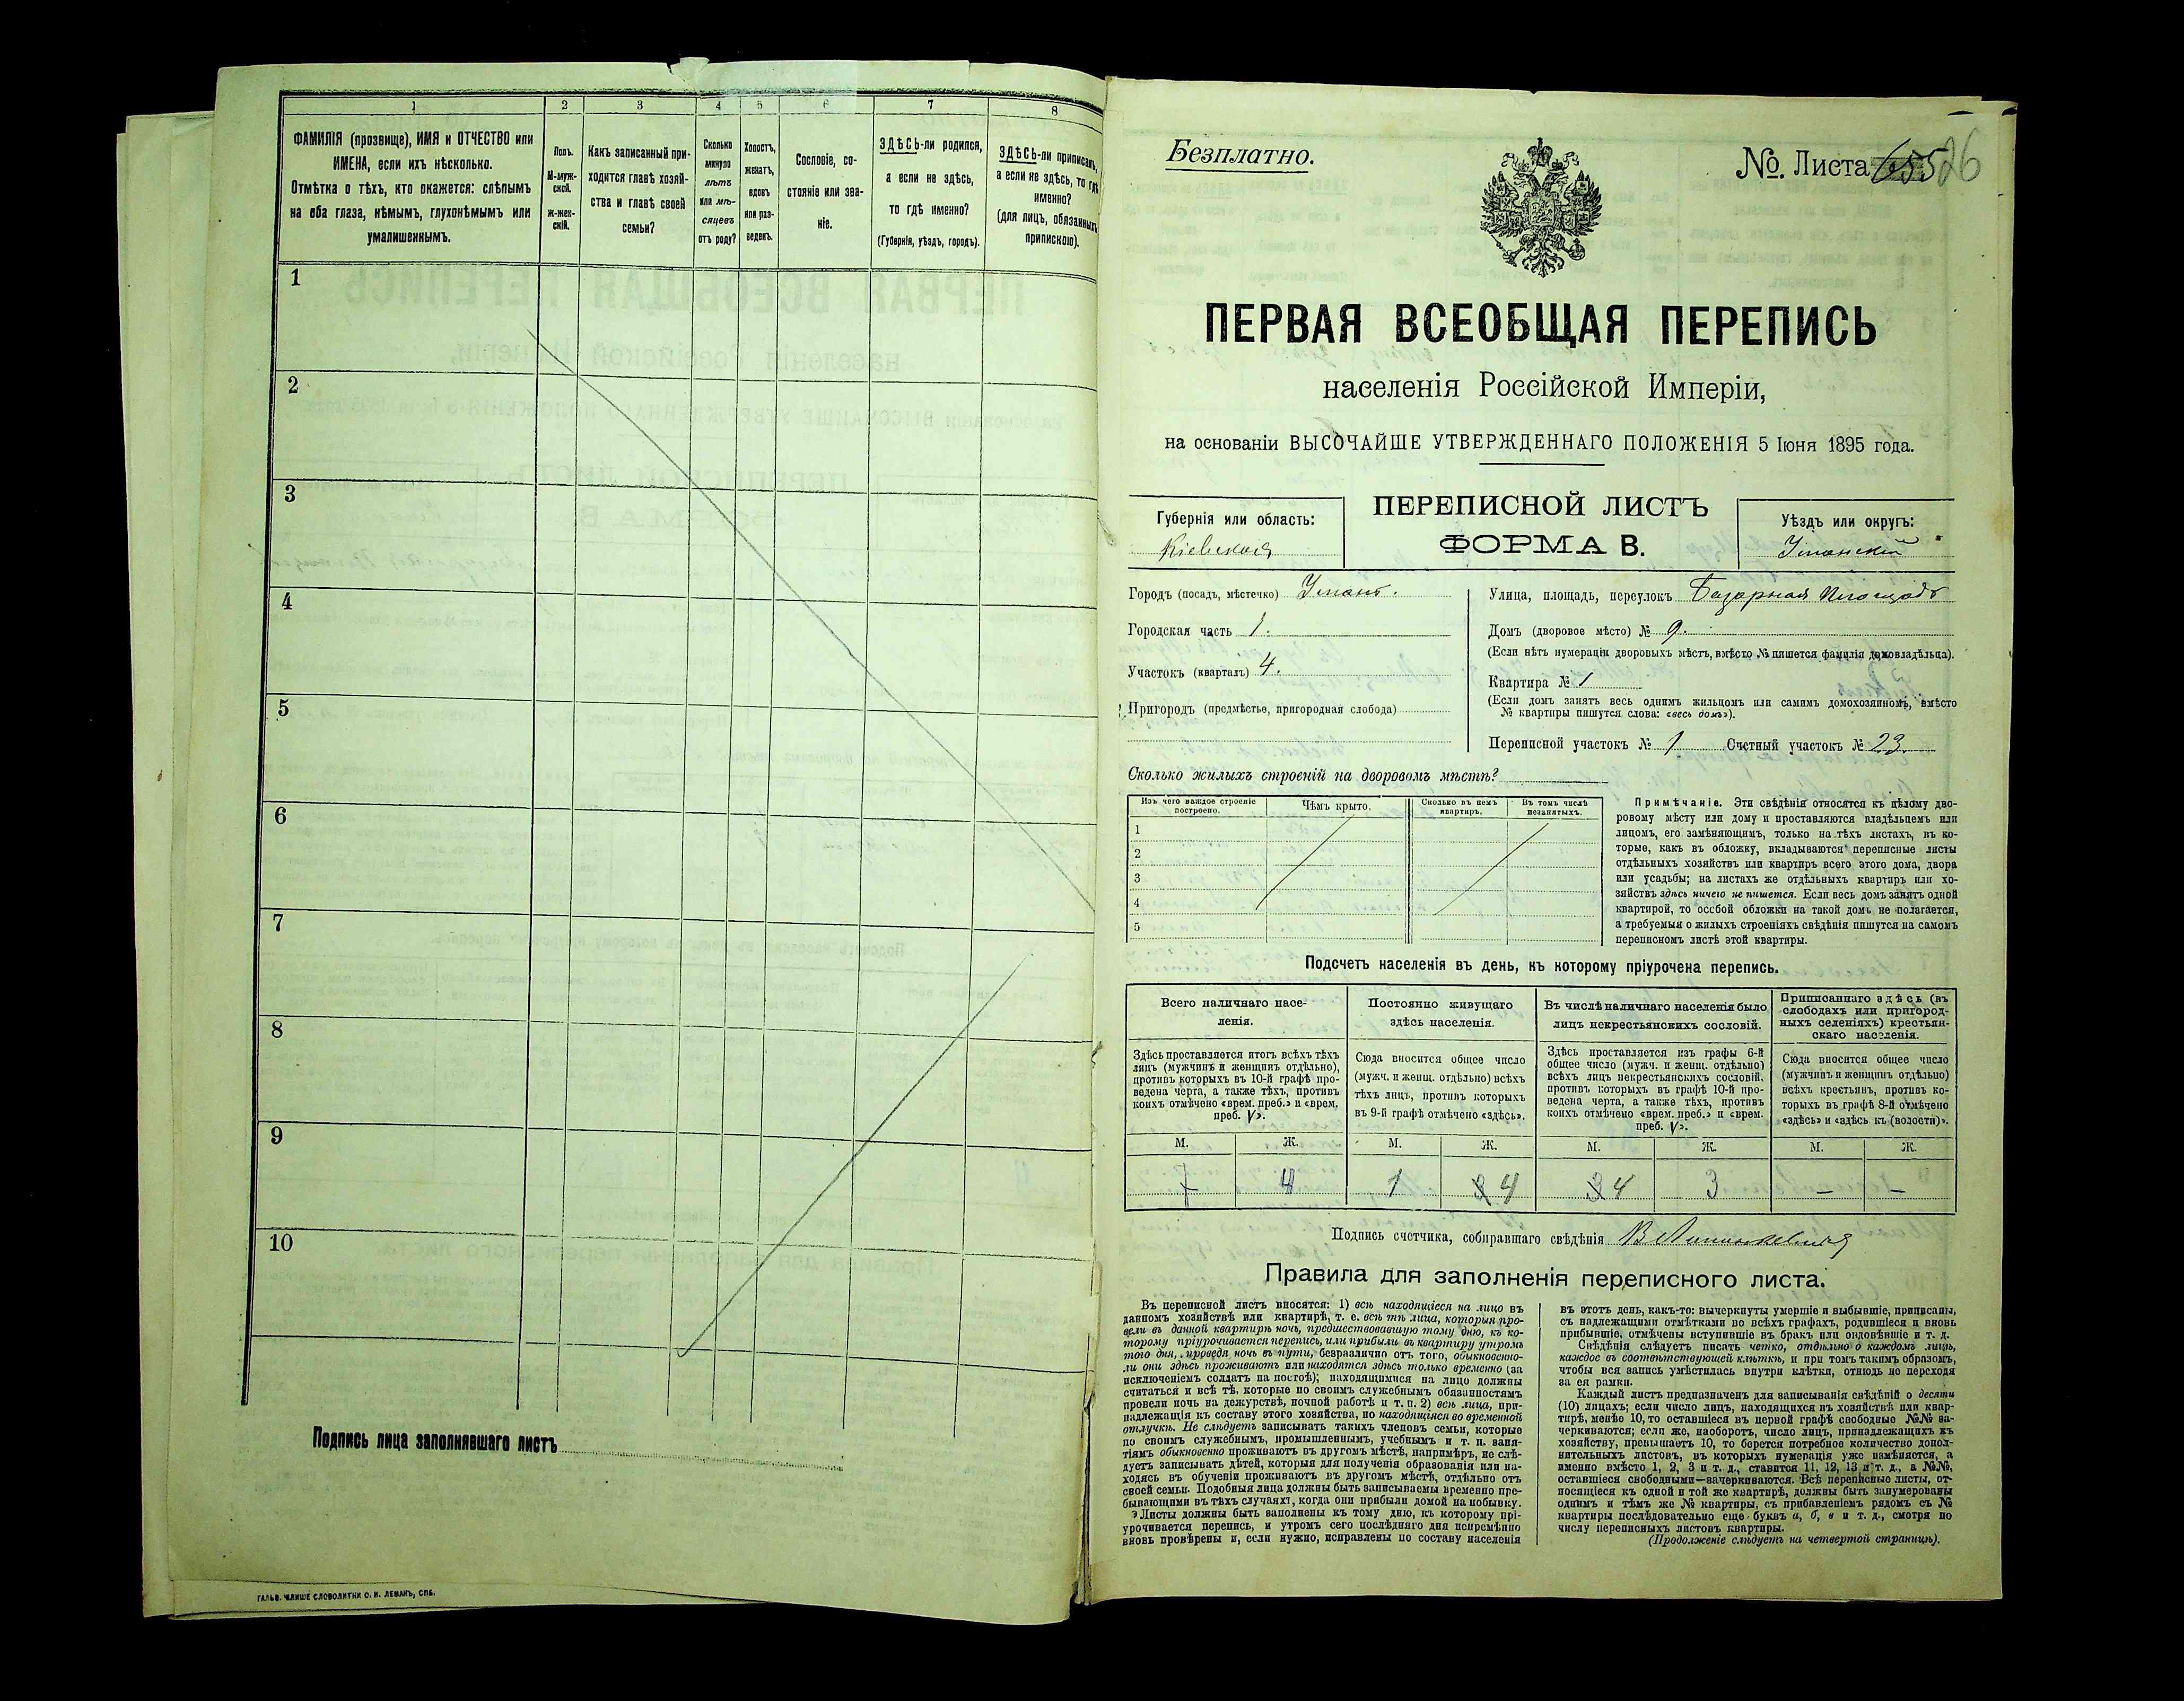 1 2 3 4 5 6 7 8
ФАМИЛІЯ (прозвище), ИМЯ и ОТЧЕСТВО или
ИМЕНА, если ихъ нѣсколько.
Отмѣтка о тѣхъ, кто окажется: слѣпымъ
на оба глаза, нѣмымъ, глухонѣмымъ или
умалишеннымъ.
Полъ.
М-муж-
ской.
ж-жен-
скій.
Какъ записанный при-
ходится главѣ хозяй-
ства и главѣ своей
семьи?
Сколько
минуло
лѣтъ
или мѣ-
сяцевъ
отъ роду?
Холостъ,
женатъ,
вдовъ
или раз-
веденъ.
Сословіе, со-
стояніе или зва-
ніе.
ЗДѢСЬ-ли родился,
а если не здѣсь,
то гдѣ именно?
(Губернія, уѣздъ, городъ).
ЗДѢСЬ-ли приписанъ,
а если не здѣсь, то гдѣ
именно?
(для лицъ, обязанныхъ
припискою).
1
2
3
4
5
6
7
8
9
10
Подпись лица заполнявшаго листъ
ГАЛЬВ. КЛИШЕ СЛОВОЛИТНИ О. И. ЛЕМАНЪ, СПБ.
Безплатно.
№. Листа 655 26
ПЕРВАЯ ВСЕОБЩАЯ ПЕРЕПИСЬ
населенія Россійской Имперіи,
на основаніи ВЫСОЧАЙШЕ УТВЕРЖДЕННАГО ПОЛОЖЕНІЯ 5 Іюня 1895 года.
Губернія или область:
Кіевская
ПЕРЕПИСНОЙ ЛИСТЪ
ФОРМА В.
Уѣздъ или округъ:
Уманскій
Городъ (посадъ, мѣстечко) Умань.
Городская часть 1.
Участокъ (кварталъ) 4.
Пригородъ (предмѣстье, пригородная слобода)
Улица, площадь, переулокъ Базарная площадь
Домъ (дворовое мѣсто) № 9.
(Если нѣтъ нумераціи дворовыхъ мѣстъ, вмѣсто № пишется фамилія домовладѣльца).
Квартира № 1
(Если домъ занятъ весь однимъ жильцомъ или самимъ домохозяиномъ, вмѣсто
№ квартиры пишутся слова: «весь домъ»).
Переписной участокъ № 1 Счетный участокъ № 23.
Сколько жилыхъ строеній на дворовомъ мѣстѣ?
Изъ чего каждое строеніе
построено.
Чѣмъ крыто.
Сколько въ немъ
квартиръ.
Въ томъ числѣ
незанятыхъ.
1
2
3
4
5
Примѣчаніе. Эти свѣдѣнія относятся къ цѣлому дво-
ровому мѣсту или дому и проставляются владѣльцемъ или
лицомъ, его замѣняющимъ, только на тѣхъ листахъ, въ ко-
торые, какъ въ обложку, вкладываются переписные листы
отдѣльныхъ хозяйствъ или квартиръ всего этого дома, двора
или усадьбы; на листахъ же отдѣльныхъ квартиръ или хо-
зяйствъ здѣсь ничего не пишется. Если весь домъ занятъ одной
квартирой, то особой обложки на такой домъ не полагается,
а требуемыя о жилыхъ строеніяхъ свѣдѣнія пишутся на самомъ
переписномъ листѣ этой квартиры.
Подсчетъ населенія въ день, къ которому пріурочена перепись.
Всего наличнаго насе-
ленія.
Здѣсь проставляется итогъ всѣхъ тѣхъ
лицъ (мужчинъ и женщинъ отдѣльно),
противъ которыхъ въ 10-й графѣ про-
ведена черта, а также тѣхъ, противъ
коихъ отмѣчено «врем. преб.» и «врем.
преб. V».
Постоянно живущаго
здѣсь населенія.
Сюда вносится общее число
(мужч. и женщ. отдѣльно) всѣхъ
тѣхъ лицъ, противъ которыхъ
въ 9-й графѣ отмѣчено «здѣсь».
Въ числѣ наличнаго населенія было
лицъ некрестьянскихъ сословій.
Здѣсь проставляется изъ графы 6-й
общее число (мужч. и женщ. отдѣльно)
всѣхъ лицъ некрестьянскихъ сословій,
противъ которыхъ въ графѣ 10-й про-
ведена черта, а также тѣхъ, противъ
коихъ отмѣчено «врем. преб.» и «врем.
преб. V».
Приписаннаго здѣсь (въ
слободахъ или пригород-
ныхъ селеніяхъ) крестьян-
скаго населенія.
Сюда вносится общее число
(мужчинъ и женщинъ отдѣльно)
всѣхъ крестьянъ, противъ ко-
торыхъ въ графѣ 8-й отмѣчено
«здѣсь» и «здѣсь къ (волости)».
М. Ж. М. Ж. М. Ж. М. Ж.
4 1 4 4 3 — —
Подпись счетчика, собиравшаго свѣдѣнія
Правила для заполненія переписного листа.
Въ переписной листъ вносятся: 1) всѣ находящіеся на лицо въ
данномъ хозяйствѣ или квартирѣ, т. е. всѣ тѣ лица, которыя про-
вели въ данной квартирѣ ночь, предшествовавшую тому дню, къ ко-
торому пріурочивается перепись, или прибыли въ квартиру утромъ
того дня, проведя ночь въ пути, безразлично отъ того, обыкновенно-
ли они здѣсь проживаютъ или находятся здѣсь только временно (за
исключеніемъ солдатъ на постоѣ); находящимися на лицо должны
считаться и всѣ тѣ, которые по своимъ служебнымъ обязанностямъ
провели ночь на дежурствѣ, ночной работѣ и т. п. 2) всѣ лица, при-
надлежащія къ составу этого хозяйства, но находящіяся во временной
отлучкѣ. Не слѣдуетъ записывать такихъ членовъ семьи, которые
по своимъ служебнымъ, промышленнымъ, учебнымъ и т. п. заня-
тіямъ обыкновенно проживаютъ въ другомъ мѣстѣ, напримѣръ, не слѣ-
дуетъ записывать дѣтей, которыя для полученія образованія или на-
ходясь въ обученіи проживаютъ въ другомъ мѣстѣ, отдѣльно отъ
своей семьи. Подобныя лица должны быть записываемы временно пре-
бывающими въ тѣхъ случаяхъ, когда они прибыли домой на побывку.
Листы должны быть заполнены къ тому дню, къ которому прі-
урочивается перепись, и утромъ сего послѣдняго дня непремѣнно
вновь провѣрены и, если нужно, исправлены по составу населенія
въ этотъ день, какъ-то: вычеркнуты умершіе и выбывшіе, приписаны,
съ надлежащими отмѣтками во всѣхъ графахъ, родившіеся и вновь
прибывшіе, отмѣчены вступившіе въ бракъ или овдовѣвшіе и т. д.
Свѣдѣнія слѣдуетъ писать четко, отдѣльно о каждомъ лицѣ,
каждое въ соотвѣтствующей клѣткѣ, и при томъ такимъ образомъ,
чтобы вся запись умѣстилась внутри клѣтки, отнюдь не переходя
за ея рамки.
Каждый листъ предназначенъ для записыванія свѣдѣній о десяти
(10) лицахъ; если число лицъ, находящихся въ хозяйствѣ или квар-
тирѣ, менѣе 10, то оставшіеся въ первой графѣ свободные №№ за-
черкиваются; если же, наоборотъ, число лицъ, принадлежащихъ къ
хозяйству, превышаетъ 10, то берется потребное количество допол-
нительныхъ листовъ, въ которыхъ нумерація уже измѣняется, а
именно вмѣсто 1, 2, 3 и т. д., ставится 11, 12, 13 и т. д., а №№,
оставшіеся свободными—зачеркиваются. Всѣ переписные листы, от-
носящіеся къ одной и той же квартирѣ, должны быть занумерованы
однимъ и тѣмъ же № квартиры, съ прибавленіемъ рядомъ съ №
квартиры послѣдовательно еще буквъ а, б, в и т. д., смотря по
числу переписныхъ листовъ квартиры.
(Продолженіе слѣдуетъ на четвертой страницѣ).